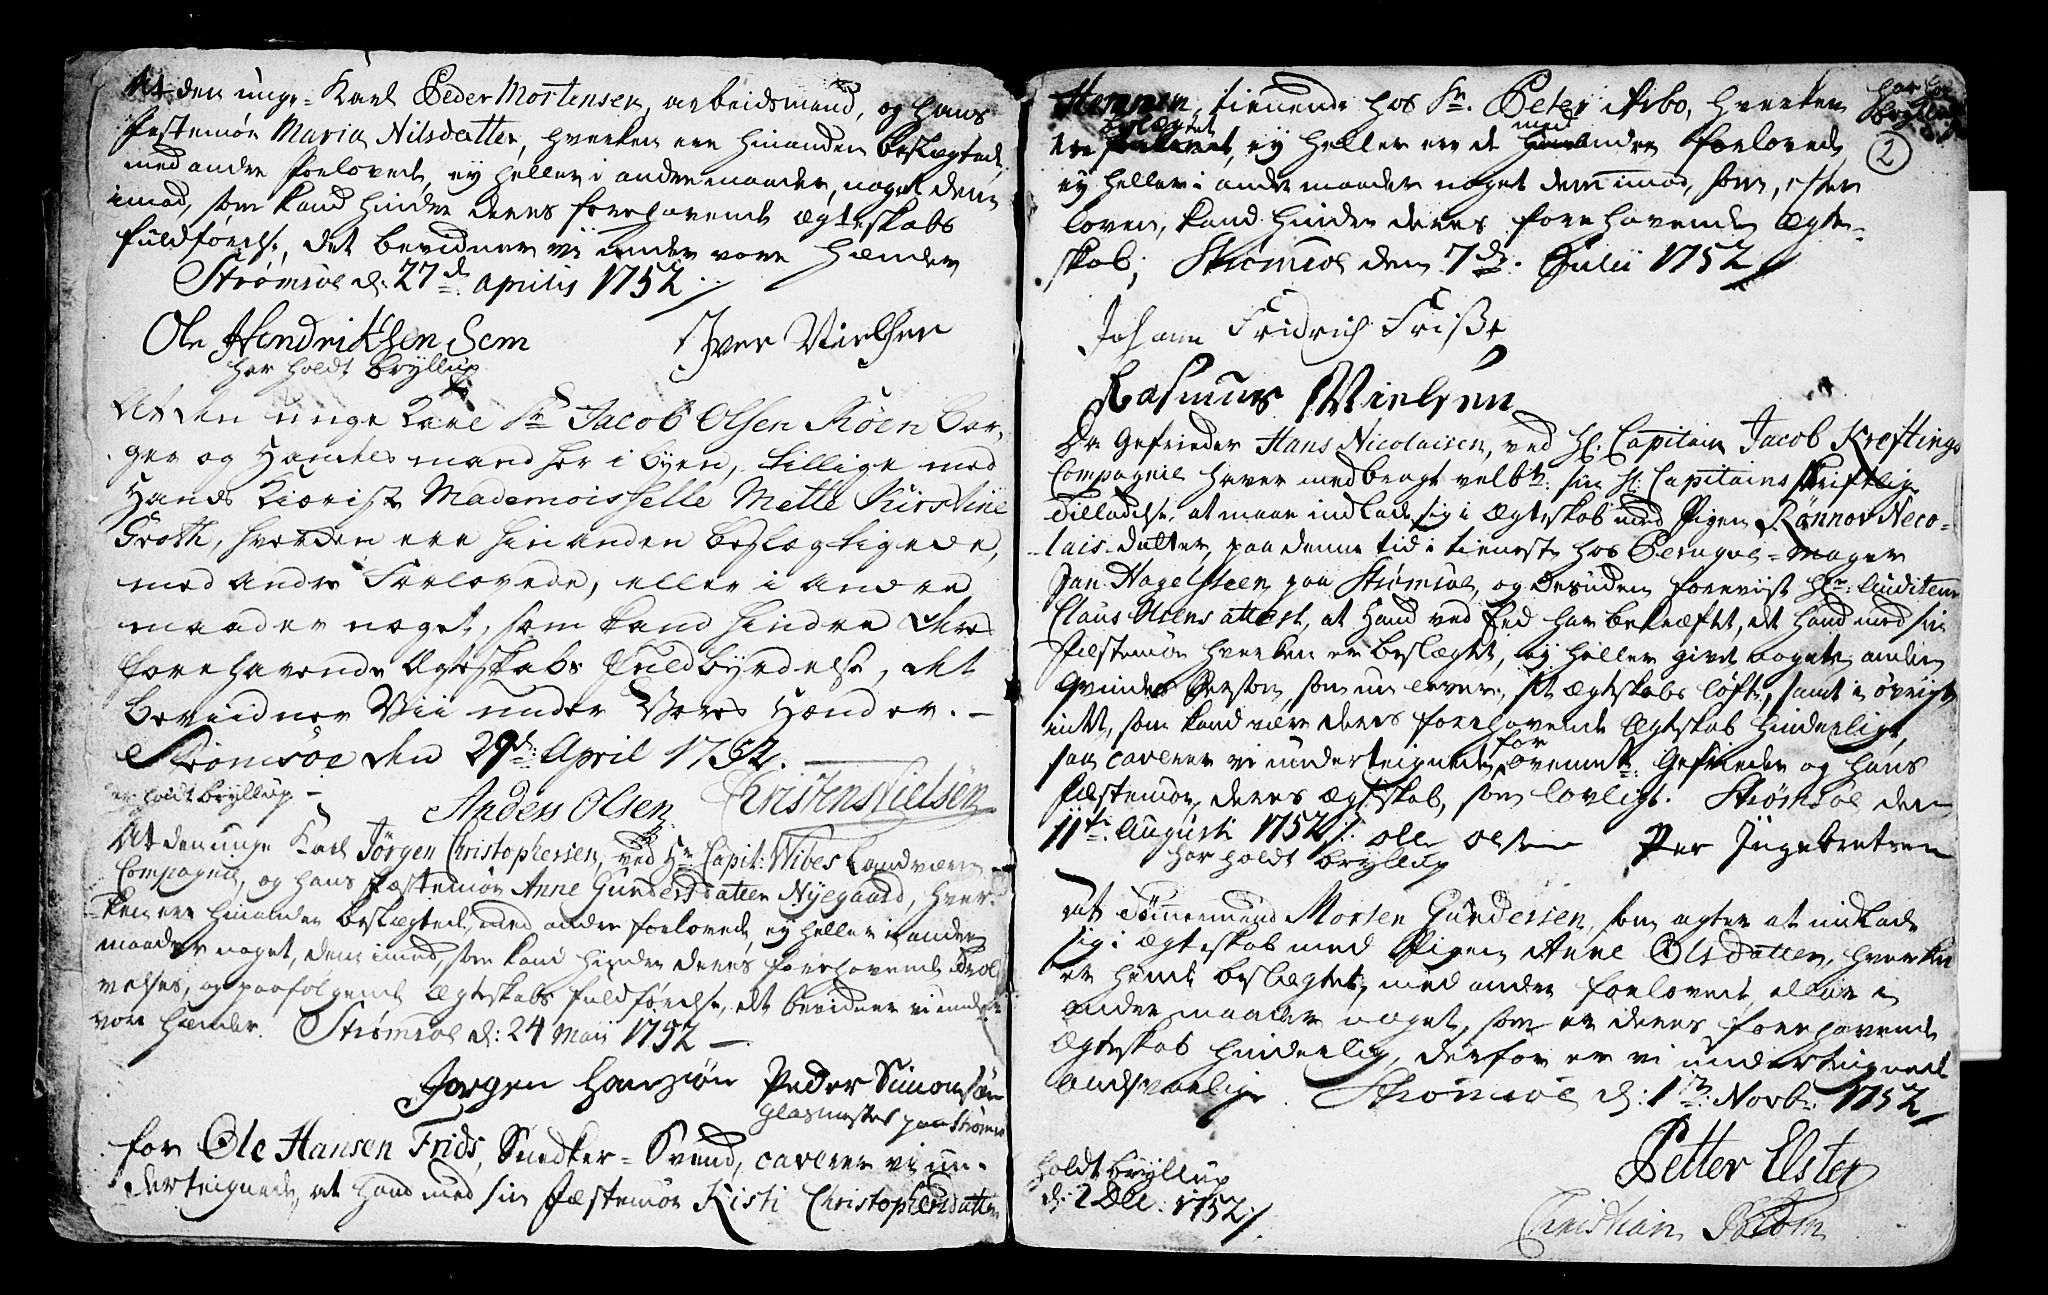 At den unge Karl Peder Mortensen, arbeidsmand, og hans
festemøe Maria Nilsdatter, hverken ere hinanden beslegtede,
med andre forlovede, ey heller i andre maader, noget dem
imod, som kand hindre deres forehavende ægteskabs
fuldførelse, det bevidner vi under vore Hænder
Strømsøe d: 27d Aprilis 1752
Ole Hendriksen Sem Iver Nielsen
har holdt bryllup
At den unge Karl Sr Jacob Olsen Røen bor-
ger og Handels mand her i byen, tillige med
Hands Kiæriste Mademoisselle Mette Kirstine
Groth, hverken ere hinanden beslægtigede,
med andre Forlovede, eller i andre
maader noget, som kand hindre deres
forehavende Ægteskabs Fuldbyrdelse, det
beviidner Vii under Vores Hænder. -
Strømsøe den 29d: April 1752.
holdt bryllup -
Anders Olsen Christen Nielsen
At den unge Karl Jörgen Christophersen, ved Hr Capit: Wibes Landværn
Compagnie, og hans fæstemøe Anne Gundersdatter Nyegaard, hver-
ken ere hinanden beslægtede, med andre forlovede, ey heller i andre
maader noget, dem imod, som kand hindre deres forehavende Trol
velses, og paafølgende Ægteskabs fuldførelse, det bevidner vi under
vore Hænder. Strømsøe d: 24 Maij 1752 -
Jørgen Hansøn Peder Simonsøn
Glasmester paa Strømsøe
for Ole Hansen Frids, Snedker-Svend, caverer vi un-
dertegnede, at hand med sin Fæstemøe Kisti Christophersdatter
2
har
bryllup
tienende hos Sr. Peter Arbo, hverken
beslægtet med
ere, ey heller ere de andre forlovede,
ey heller i andre maader noget dem imod, som, efter
loven, kand hindre deres forehavende Ægte-
skab; Strømsøe den 7de. Julii 1752
Johann Fridrich Friße
Rasmus Nielsen
Gefrieder Hans Nicolaisen, ved Hr. Capitain Jacob Kreftings
Compagnie haver medbragt velbr: sin Hr: Capitains skriftlige
Tilladelse, at maae indlade sig i Ægteskab med Pigen Rönnov Neco-
lais datter, paa denne tid i tieneste hos Peruque-mager
Jan Hagelsteen paa Strømsøe, og desuden foreviist Hr: Auditeur
Claus Olsens attest, at Hand ved Eed har bekræftet, at hand med sin
Fæstemøe hverken er beslægtet, ey heller givet nogen anden
Qvindes Person, som nu lever, sit ægteskabs løfte, samt i øvrigt
intet, som kand være deres forehavende Ægteskab hinderligt,
for
saa caverer vi undertegnede ovenmte: Gefrieder og hans
Fæstemøe, deres ægteskab, som lovligt. Strømsøe den
11te: Augusti 1752 Ole Olsen Per Ingebretsen
har holdt bryllup
At Tømmermand Morten Gundersen, som agter at indlade
sig i ægteskab med Pigen Anne Olsdatter, hverken
er hende beslægtet, med anden forlovet eller i
andre maader noget, som er deres forehavende
Ægteskab hinderlig, derfor er vi undertegnede
andsvarlige. Strømsøe d: 1te: Novbr: 1752
Petter Elster
holdt bryllup
d: 2 Dec: 1752
Christian